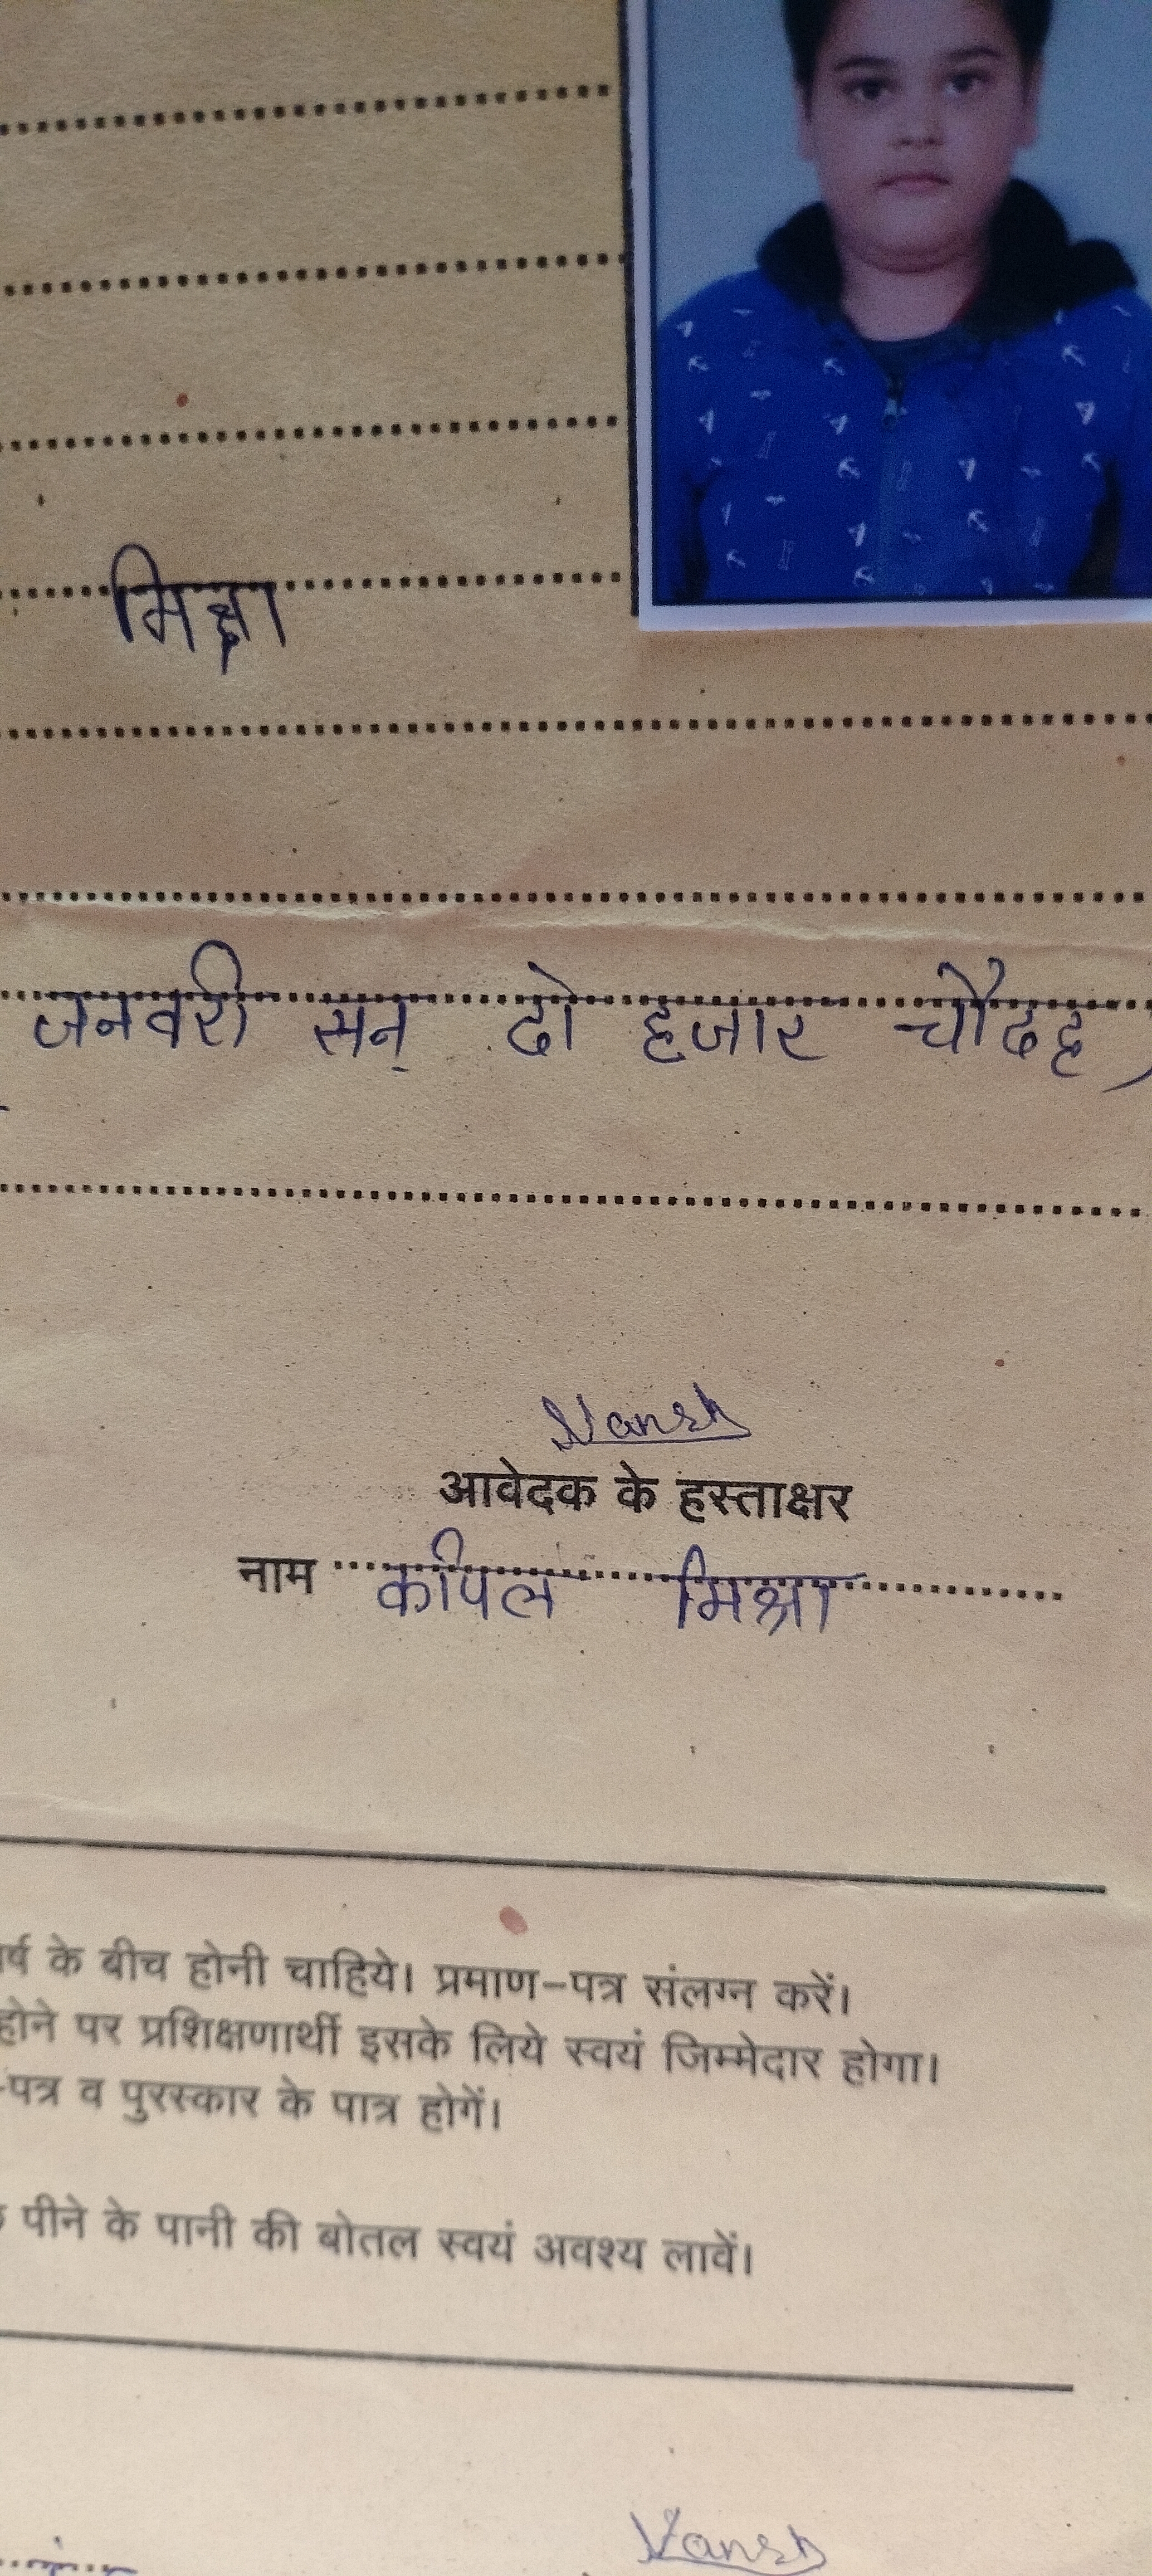 मिश्रा
जनवरी सन् दो हजार चौदह)
Vansh
आवेदक के हस्ताक्षर
नाम कपिल मिश्रा
र्ष के बीच होनी चाहिये। प्रमाण-पत्र संलग्न करें।
होने पर प्रशिक्षणार्थी इसके लिये स्वयं जिम्मेदार होगा।
-पत्र व पुरस्कार के पात्र होगें।
पीने के पानी की बोतल स्वयं अवश्य लावें।
Vansh